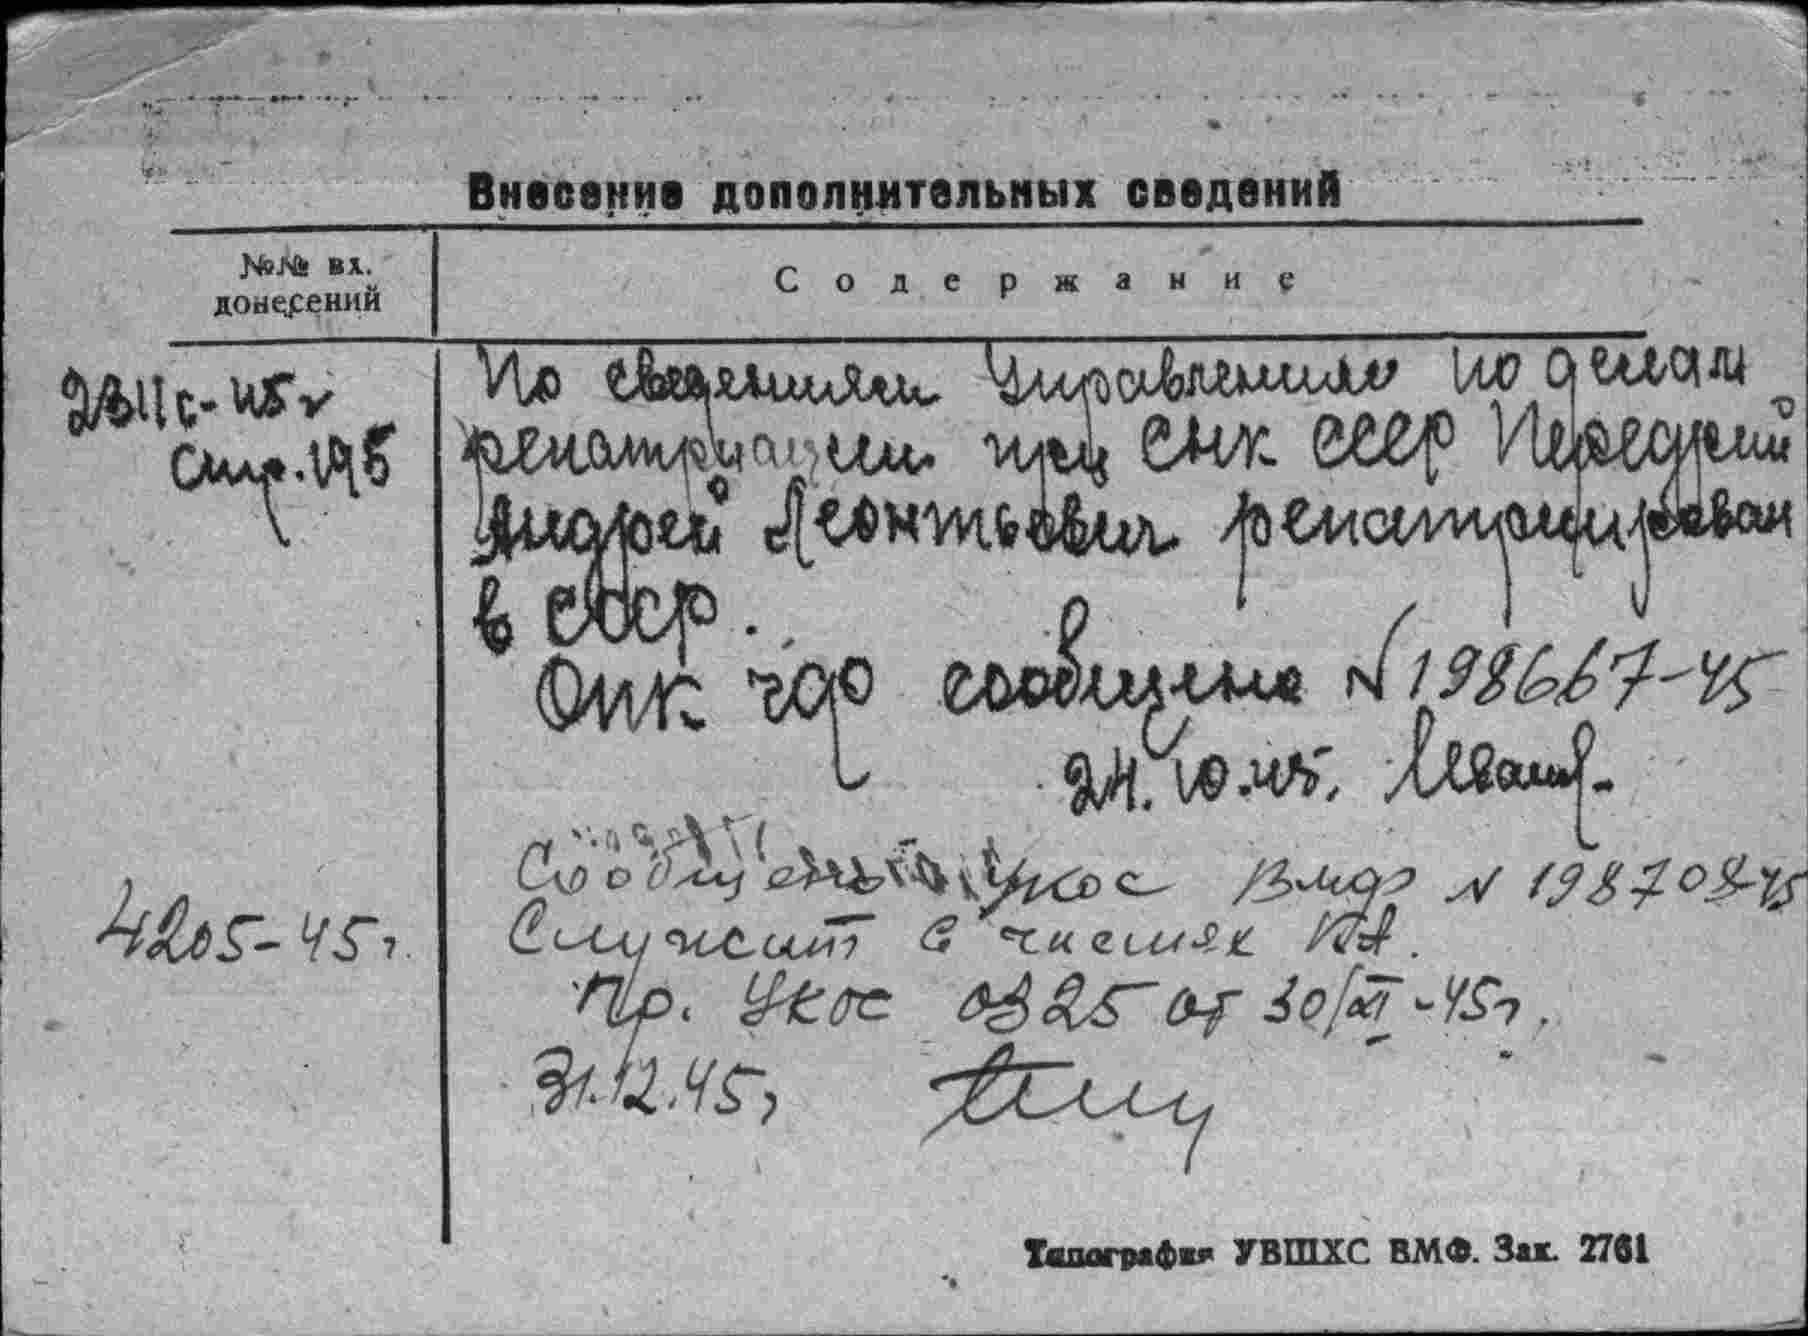 Внесение дополнительных сведений
№№ вх.
донесений
Содержание
2311с-45г
Стр. 195
По сведениям Управления по делам
репатриации при СНК СССР Передрий
Андрей Леонтьевич репатриирован
в СССР.
сообщено № 198667-45
24.10.45.
Сообщено Укос ВМФ № 198708-45
4205-45г.
Служит в частях КА.
Пр. Укос 0325 от 30/XI-45г.
31.12.45г
Типография УВШХС ВМФ. Зак. 2761